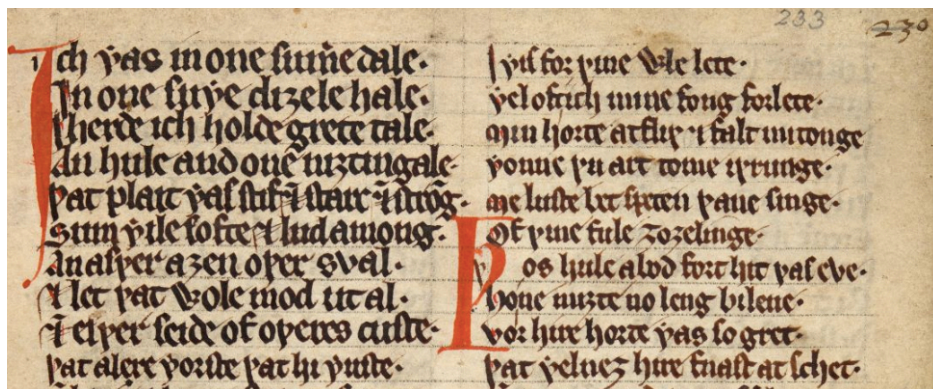 233 230
Ich ƿas in one sum̃e dale·
In one suþe diȝele hale·
Iherde ich holde grete tale·
An hule and one niȝtingale·
Þat plait ƿas stif ⁊ starc ⁊ strõg·
Sum ƿile softe ⁊ lud among·
An aſþer aȝen oþer sval·
⁊ let þat vvole mod ut al·
⁊ eiþer seide of oþeres custe·
Þat alere ƿorste þat hi ƿuste·
Iƿis for þine vvle lete·
Ƿel oft ich mine song forlete·
Min horte atfliþ ⁊ falt mi tonge
Ƿonne þu art to me iþrunge·
Me luste bet speten þane singe·
Of þine fule ȝoȝelinge·
Þos hule abod fort hit ƿas eve·
Ho ne miȝte no leng bileue·
Vor hire horte ƿas so gret·
Þat ƿelneȝ hire fnast at schet·